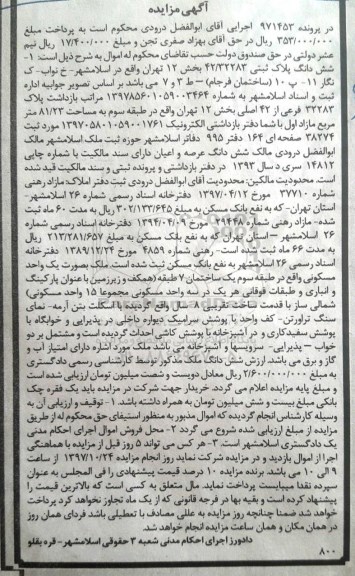 آگهی مزایده
در پرونده ۹۷۱۴۵۳ اجرایی آقای ابوالفضل درودی محکوم است به پرداخت مبلغ
۳۵۳/۰۰۰/۰۰۰ ریال در حق آقای بهزاد صفری تجن و مبلغ ۱۷/۴۰۰/۰۰۰ ریال نیم
عشر دولتی در حق صندوق دولت حسب تقاضای محکوم له اموال به شرح ذیل است: ۱-
شش دانگ پلاک ثبتی ۴۲/۳۲۲۸۳ بخش ۱۲ تهران واقع در اسلامشهر- خ نواب- ک
نگار ۱۱- پ ۱۰ (ساختمان فرجام) – ط ۳ و ۷ می باشد بر اساس تصویر جوابیه اداره
ثبت و اسناد اسلامشهر به شماره ۱۳۹۷۸۵۶۰۱۰۵۹۰۰۳۴۶۴ مراتب بازداشت پلاک
۳۲۲۸۳ فرعی از ۴۲ اصلی بخش ۱۲ تهران واقع در طبقه سوم به مساحت ۸۱/۲۳ متر
مربع مازاد اول با شماره دفتر بازداشتی الکترونیک ۱۳۹۷۰۵۸۰۱۰۵۹۰۰۱۷۶۱ مورد ثبت
۳۸۲۷۴ صفحه ای ۱۶۴ دفتر ۹۹۵ دفاتر اسلامشهر حوزه ثبت ملک اسلامشهر مالک
ابوالفضل درودی مالک شش دانگ عرصه و اعیان دارای سند مالکیت با شماره چاپی
۱۴۸۱۲ سری د سال ۱۳۹۳ در دفتر بازداشتی و پرونده ثبتی و سند مالکیت قید شده
است. محدودیت مالکین: محدودیت آقای ابوالفضل درودی ثبت دفتر املاک: مازاد رهنی
شماره ۳۷۷۱۰ مورخ ۱۳۹۷/۰۴/۱۲ دفترخانه اسناد رسمی شماره ۲۶ اسلامشهر-
استان تهران- که به نفع بانک مسکن به مبلغ ۳۰۲/۱۳۳/۶۴۵ ریال به مدت ۶۰ ماه ثبت
شده- مازاد رهنی شماره ۱۹۴۴۸ مورخ ۱۳۹۴/۰۴/۰۹ دفترخانه اسناد رسمی شماره
۲۶ اسلامشهر – استان تهران که به نفع بانک مسکن به مبلغ ۲۱۳/۲۸۱/۶۵۷ ریال
به مدت ۶۶ ماه ثبت شده است- رهنی شماره ۴۸۵۹ مورخ ۱۳۸۹/۱۲/۲۴ دفتر خانه
اسناد رسمی ۲۶ اسلامشهر به نفع بانک مسکن ثبت شده است. ملک بصورت یک واحد
مسکونی واقع در طبقه سوم یک ساختمان ۷ طبقه (همکف و زیرزمین با عنوان پارکینگ
و انباری و طبقات فوقانی هر یک در سه واحد مسکونی مجموعا ۱۵ واحد مسکونی)
شمالی ساز با قدمت ساخت تقریبی ۸ سال واقع گردیده با اسکلت بتن آرمه- نمای
سنگ تراورتن- کف واحد با پوشش سرامیک دیواره داخلی در پذیرایی و خوابگاه با
پوشش سفیدکاری و در آشپزخانه با پوشش کاشی احداث گردیده است و مشتمل بر دو
خواب – پذیرایی- سرویسها و آشپزخانه می باشد ملک مورد اشاره دارای امتیاز آب و
گاز و برق می باشد. ارزش شش دانگ ملک مذکور توسط کارشناس رسمی دادگستری
به مبلغ ۲/۶۰۰/۰۰۰/۰۰۰ ریال معادل دویست و شصت میلیون تومان ارزیابی شده است
و مبلغ پایه مزایده اعلام می گردد. خریدار جهت شرکت در مزایده باید یک فقره چک
بانکی مبلغ بیست و شش میلیون تومان به همراه داشته باشد. ۱- توقیف و ارزیابی آن به
وسیله کارشناس انجام گردیده که اموال مذبور به منظور استیفای حق محکوم له از طریق
مزایده از مبلغ ارزیابی شده شروع می گردد ۲- محل فروش اموال اجرای احکام مدنی
یک دادگستری اسلامشهر است. ۳- هر کس می تواند ۵ روز قبل از مزایده با هماهنگی
اجرا از اموال بازدید و در مزایده شرکت نماید روز انجام مزایده ۱۳۹۷/۱۰/۲۴ از ساعت
۹ الی ۱۰ می باشد. برنده مزایده ۱۰ درصد قیمت پیشنهادی را فی المجلس به عنوان
سپرده نقدا میبایست پرداخت نماید. مال متعلق به کسی است که بالاترین قیمت را
پیشنهاد کرده است و بقیه بها در فرجه قانونی که از یک ماه تجاوز نخواهد کرد پرداخت
خواهد شد ضمنا چنانچه روز مزایده به عللی مصادف با تعطیلی باشد فردای همان روز
در همان مکان و همان ساعت مزایده انجام خواهد شد.
دادورز اجرای احکام مدنی شعبه ۳ حقوقی اسلامشهر- قره بقلو
۸۰۰